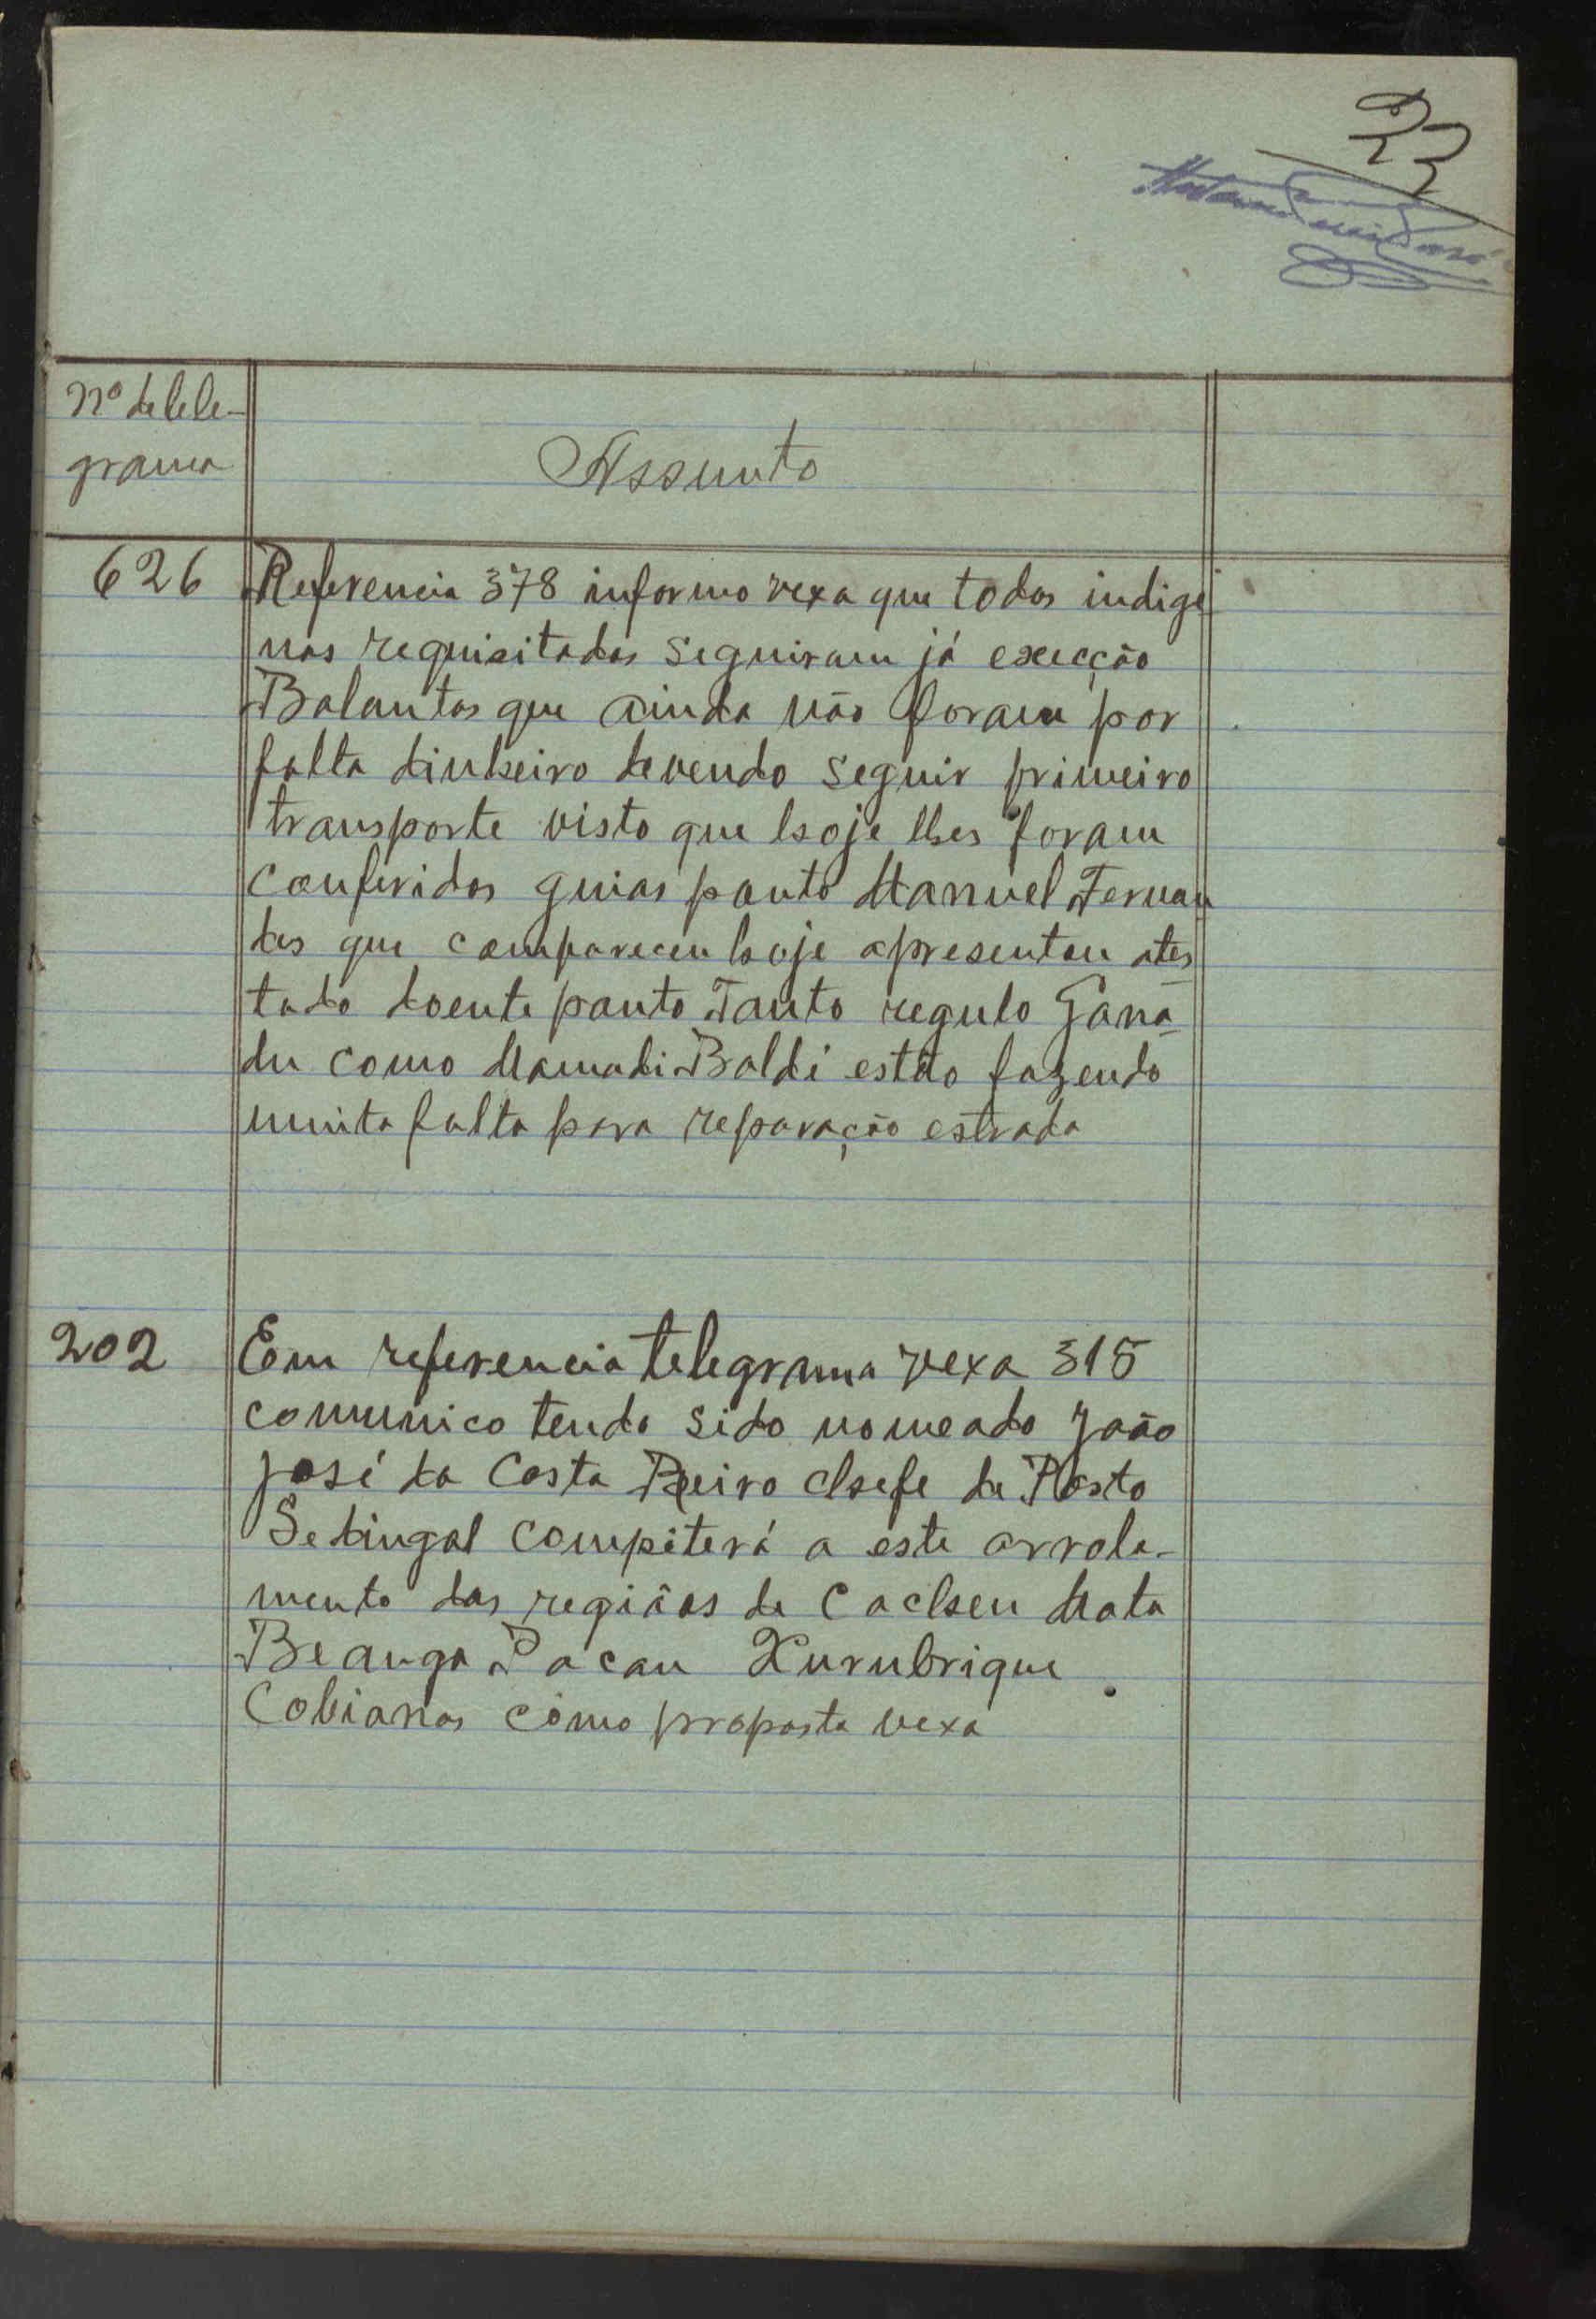 23
nº de tele-
grama
Assunto
626 Referencia 378 informo vexa que todos indige
nas requisitados seguiram já execção
Balantas que ainda não foram por
falta dinheiro devendo seguir primeiro
transporte visto que hoje lhes foram
conferidos guias ponto Manuel Fernan
des que compareceu hoje apresentou ates
tado doente ponto Tanto regulo Gana
du como Mamadi Baldé estão fazendo
muita falta para reparação estrada
202 Com referencia telegrama vexa 315
comunico tendo sido nomeado João
José da Costa chefe de Posto
Sedingal competirá a este arrola-
mento das regiões de Cacheu Mata
Beanga Pacau
Cobianas como proposta vexa